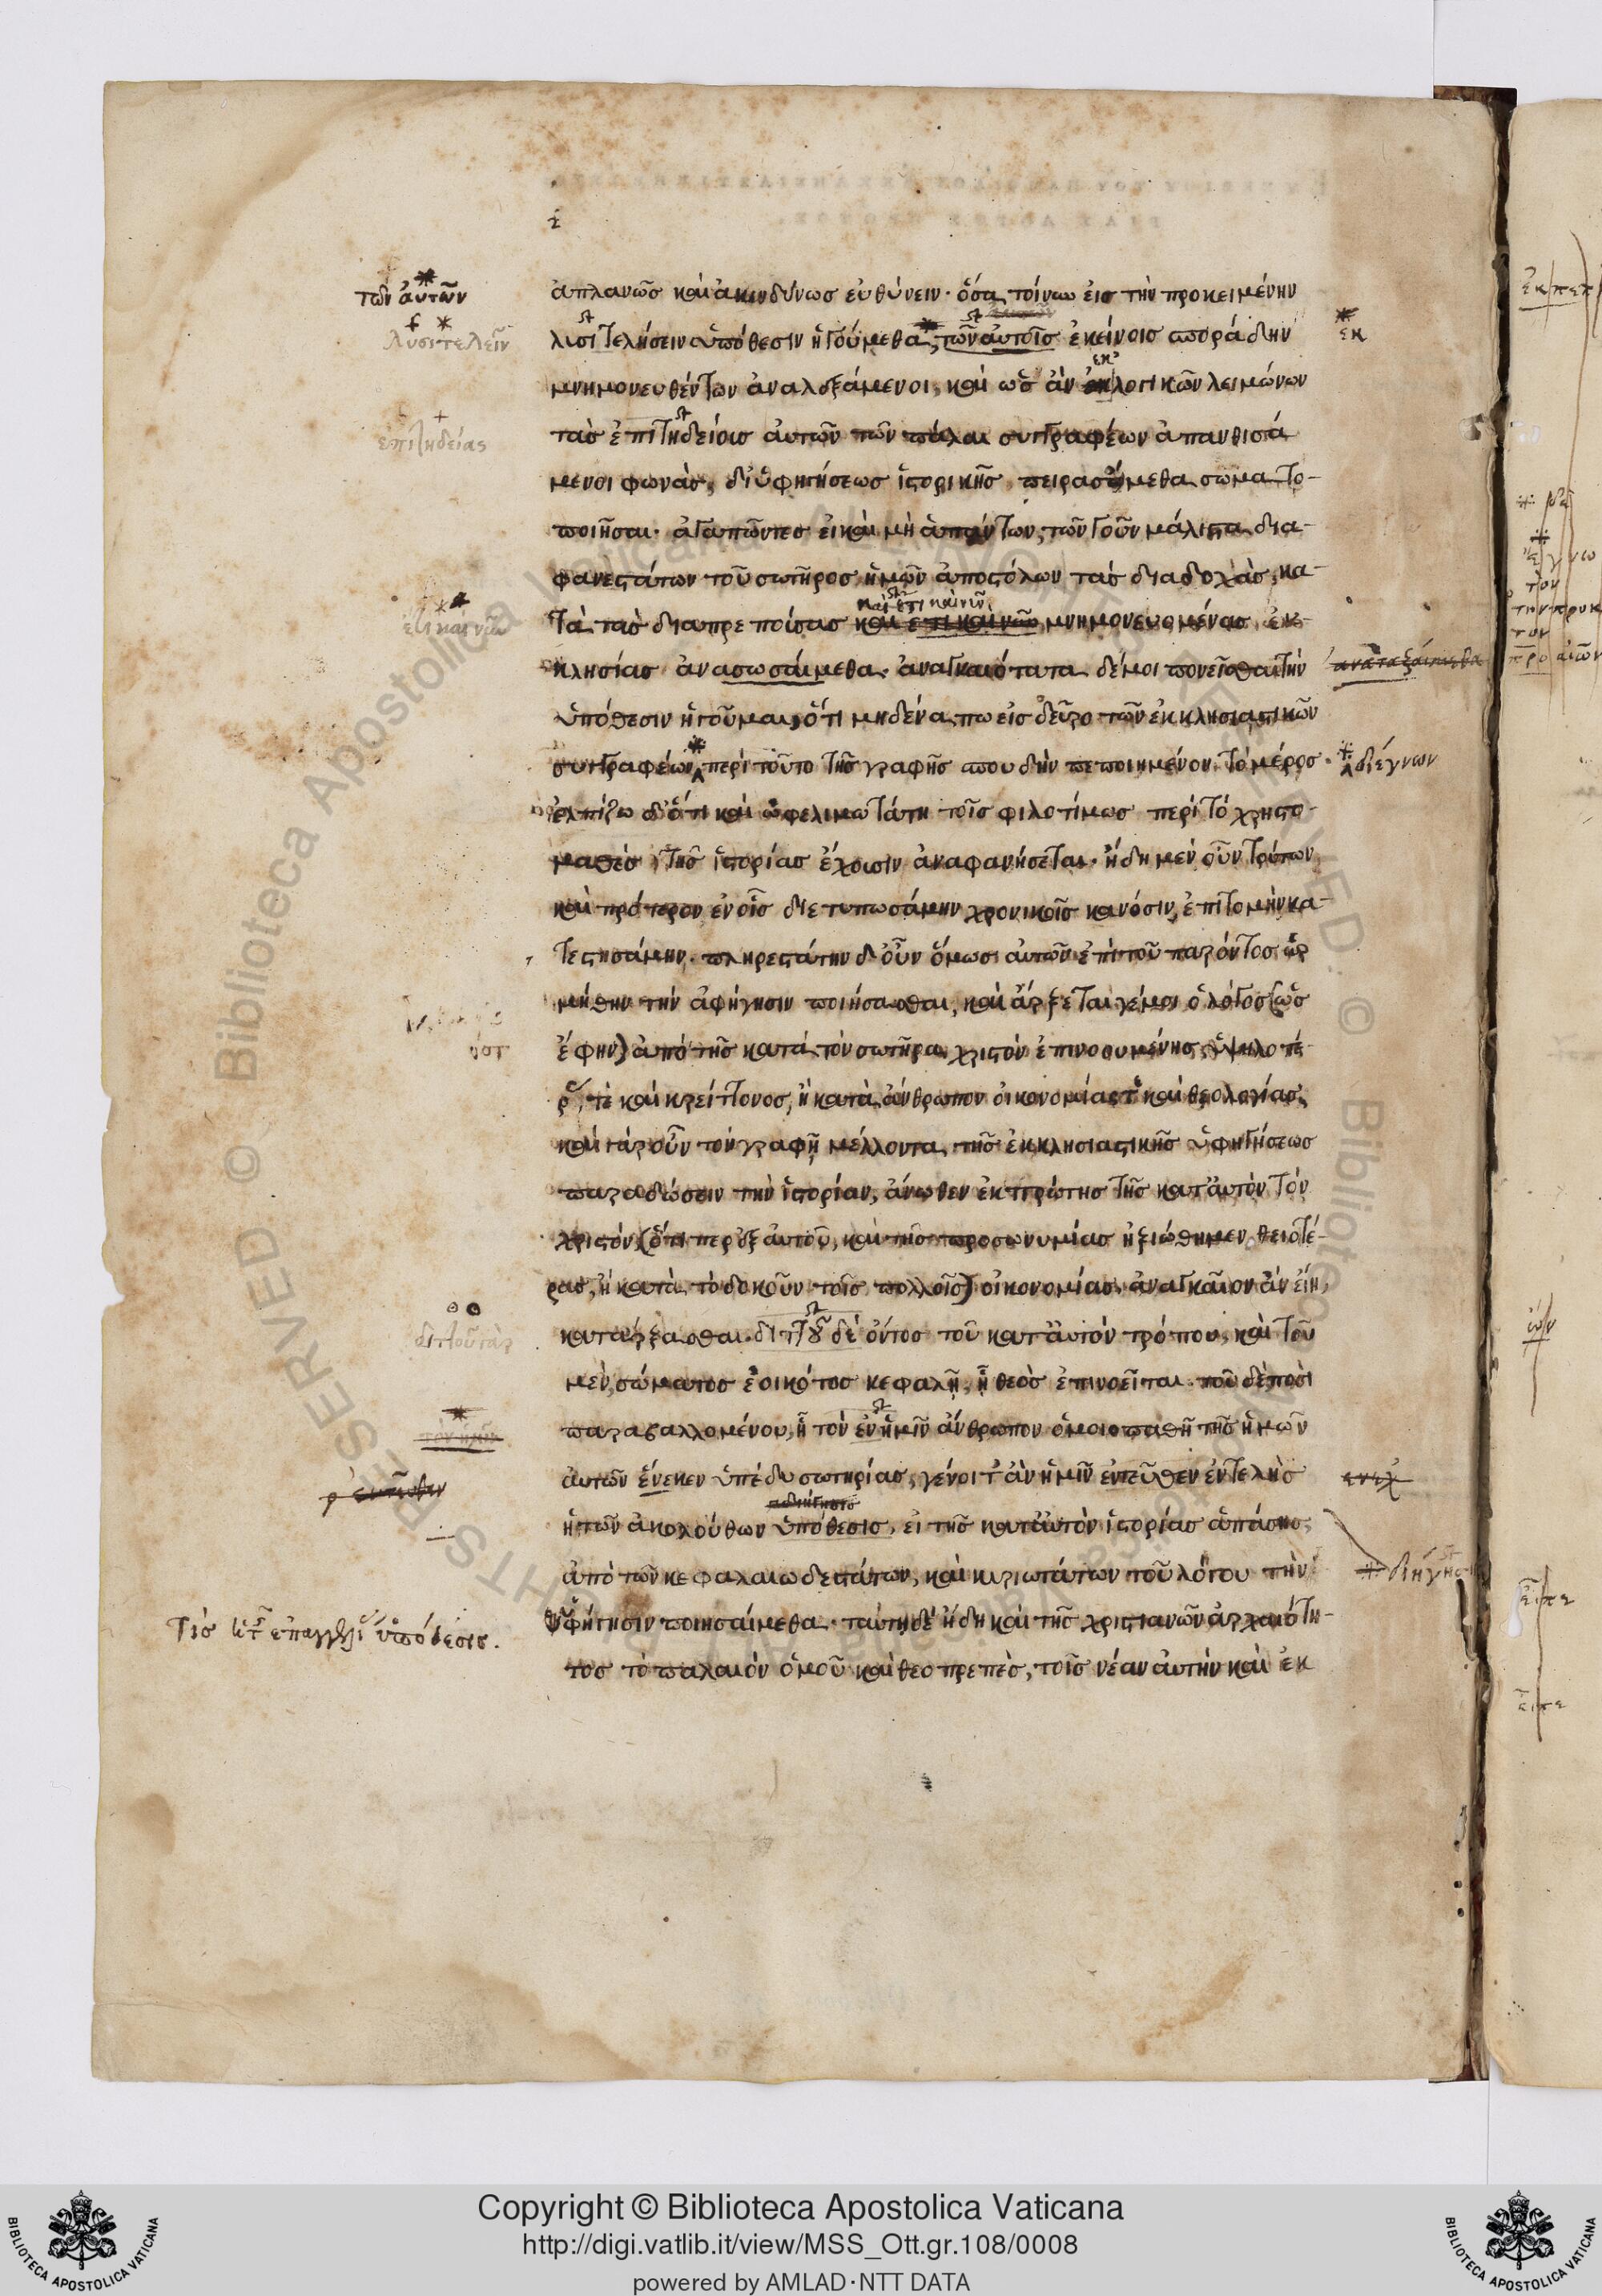 ἀπλανῶσ καὶ ἀκινδύνωσ εὐθύνειν· ὅσα τοίνυν εἰσ τὴν προκειμένην
λισιτελήσειν ὑπόθεσιν ἡγούμεθα, τῶν αὐτοῖσ ἐκείνοισ σποράδην
μνημονευθέντων ἀναλεξάμενοι, καὶ ὡσ ἂν ἐκ λογικῶν λειμώνων
τὰσ ἐπιτηδείοισ αὐτῶν τῶν πάλαι συγγραφέων ἀπανθισά
μενοι φωνὰσ, δι ὑφηγήσεωσ ἱστορικῆσ πειρασόμεθα σωματο-
ποιῆσαι· ἀγαπῶντεσ εἰ καὶ μὴ ἁπάντων, τῶν γοῦν μάλιστα δια-
φανεστάτων τοῦ σωτῆροσ ἡμῶν ἀποστόλων τὰσ διαδοχὰσ, κα-
τὰ τὰσ διαπρεπούσασ καὶ ἔτι καὶ νῦν μνημονευομένασ ἐκ-
κλησίασ ἀνασωσαίμεθα· ἀναγκαιότατα δέ μοι πονεῖσθαι τὴν
ὑπόθεσιν ἡγοῦμαι, ὅτι μηδένα πω εἰσ δεῦρο τῶν ἐκκλησιαστικῶν
συγγραφέων, περὶ τοῦτο τῆσ γραφῆσ σπουδὴν πεποιημένον τὸ μέροσ·
ἐλπίζω δ' ὅτι καὶ ὠφελιμωτάτη τοῖσ φιλοτίμωσ περὶ τὸ χρηστο-
μαθὲσ τῆσ ἱστορίασ ἔχουσιν ἀναφανήσεται· ἤδη μεν οὖν τρύπων
καὶ πρότερον ἐν οἷσ διετυπωσάμην χρονικοῖσ κανόσιν, ἐπιτομὴν κα-
τεστησάμην· πληρεστάτην δ' οὖν ὅμωσ αὐτῶν ἐπὶ τοῦ παρόντοσ ὡρ
μήθην τὴν ἀφήγησιν ποιήσασθαι, καὶ ἄρξεται γέ μοι ὁ λόγοσ (ὡσ
ἔφην) ἀπὸ τῆσ κατὰ τὸν σωτῆρα χριστὸν ἐπινοουμένησ ὑψηλοτέ-
ρ τε καὶ κρείττονοσ, ἢ κατὰ ἄνθρωπον οἰκονομίασ τ καὶ θεολογίασ,
καὶ γὰρ οὖν τὸν γραφῇ μέλλοντα τῆσ ἐκκλησιαστικῆσ ὑφηγήσεωσ
παραδώσειν τὴν ἱστορίαν, ἄνωθεν ἐκ πρώτησ τῆσ κατ' αὐτὸν τὸν
χριστὸν (ὅτι περ ἐξ αὐτοῦ, καὶ τῆσ προσωνυμίασ ἠξιώθημεν θειοτέ-
ρασ, ἢ κατὰ τὸ δοκοῦν τοῖσ πολλοῖσ) οἰκονομίασ, ἀναγκαῖον ἂν εἴη,
κατάρξασθαι. διττοῦ δὲ ὄντοσ τοῦ κατ' αὐτὸν τρόπου, καὶ τοῦ
μὲν, σώματοσ ἐοικότοσ κεφαλῇ, ᾗ θεὸσ ἐπινοεῖται· τοῦ δὲ ποσὶ
παραβαλλομένου, ᾗ τὸν ἐν ἡμῖν ἄνθρωπον ὁμοιοπαθῆ τῆσ ἡμῶν
αὐτῶν ἕνεκεν ὑπέδυ σωτηρίασ, γένοιτ' ἂν ἡμῖν ἐντεῦθεν ἐντελὴσ
ἡ τῶν ἀκολούθων ὑπόθεσισ, εἰ τῆσ κατ' αὐτὸν ἱστορίασ ἁπάσησ,
ἀπὸ τῶν κεφαλαιωδεστάτων, καὶ κυριωτάτων τοῦ λόγου τὴν
ὑφήγησιν ποιησαίμεθα· ταύτῃ δὲ ἤδη καὶ τῆσ χριστιανῶν ἀρχαιότη-
τοσ τὸ παλαιὸν ὁμοῦ καὶ θεοπρεπὲσ, τοῖσ νέαν αὐτὴν καὶ ἐκ
τῶν αὐτῶν
λυσιτελεῖν
ἐπιτηδείας
ἔτι καὶ νῦν
διττοῦ γὰρ
ἐντεῦθεν
ὑπόθεσις.
ἐκ
ἀναταξαίμεθα
διέγνων
Copyright © Biblioteca Apostolica Vaticana
http://digi.vatlib.it/view/MSS_Ott.gr.108/0008
powered by AMLAD·NTT DATA